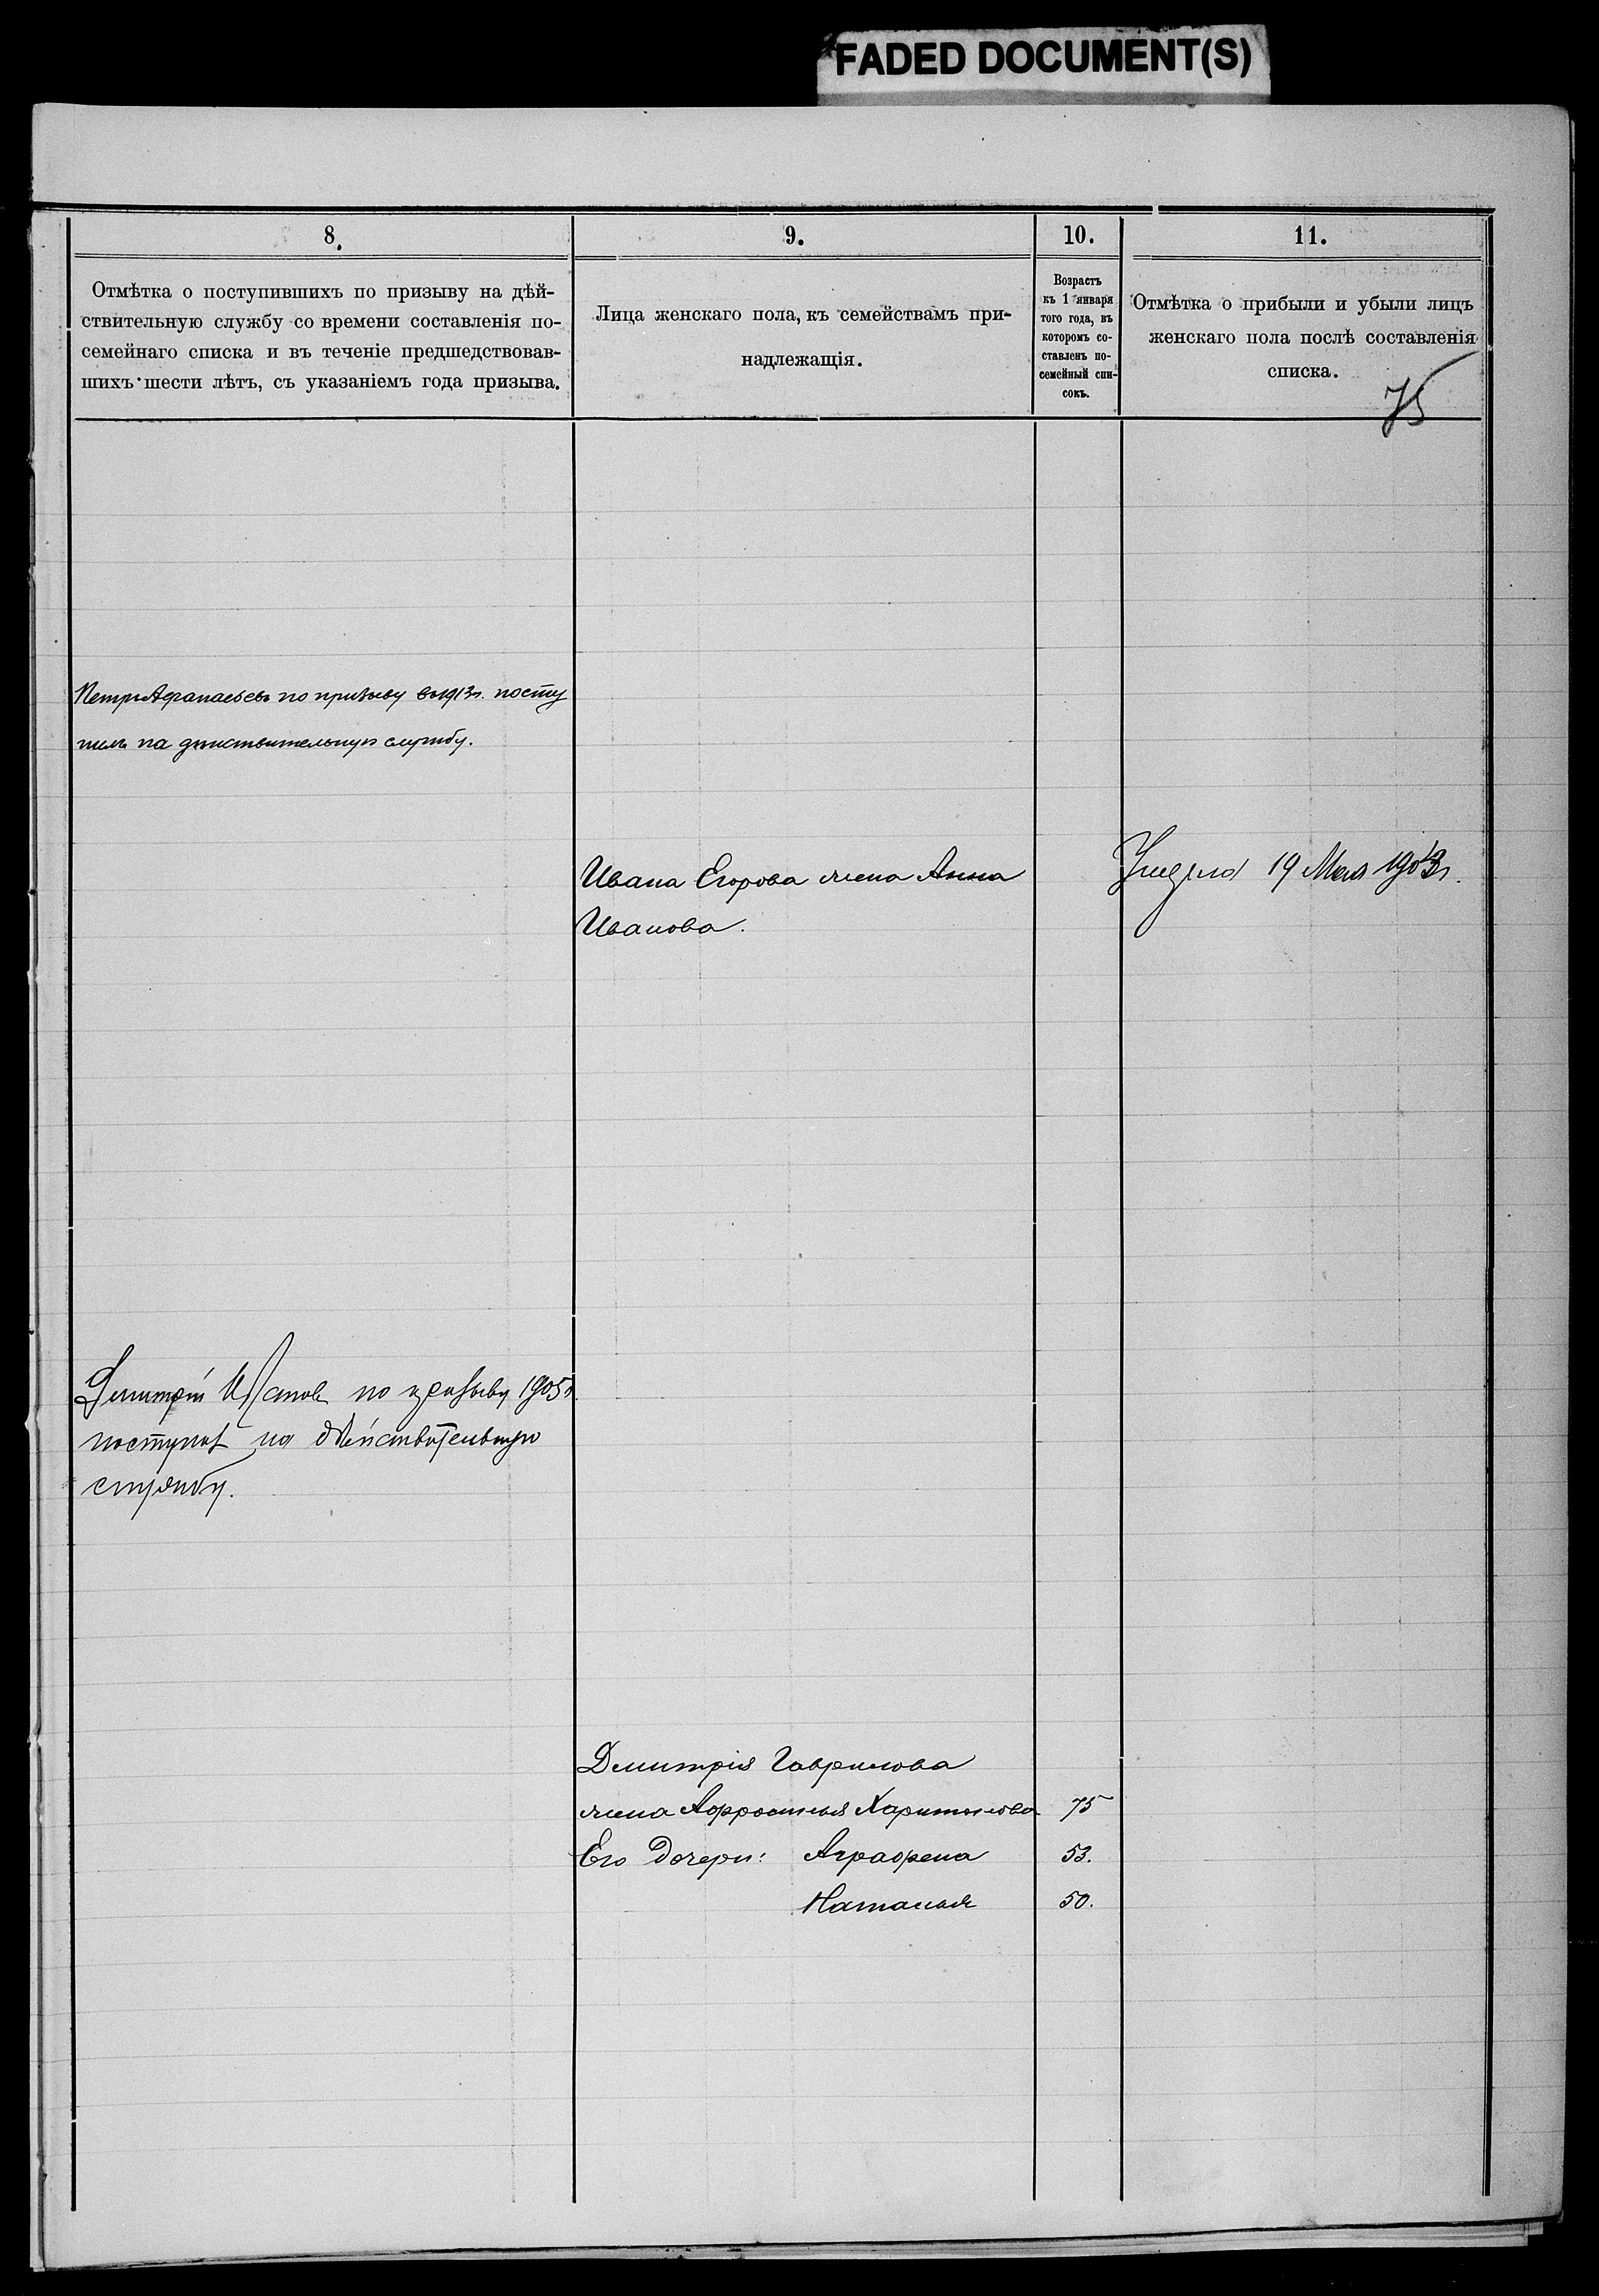 FADED DOCUMENT(S)
8.
Отмѣтка о поступившихъ по призыву на дѣй-
ствительную службу со времени составленія по-
семейнаго списка и въ теченіе предшедствовав-
шихъ шести лѣтъ, съ указаніемъ года призыва.
9.
Лица женскаго пола, къ семействамъ при-
надлежащія.
10.
Возрастъ
къ 1 января
того года, въ
которомъ со-
ставленъ по-
семейный спи-
сокъ.
11.
Отмѣтка о прибыли и убыли лицъ
женскаго пола послѣ составленія
списка.
75
Петръ Афанасьевъ по призыву въ 1913 г. посту
пилъ на дѣйствительную службу.
Ивана Егорова жена Анна
Иванова.
19 Мая
Дмитрій Ивановъ по призыву 1905 г.
поступилъ на дѣйствительную
службу.
Дмитрія Гаврилова
жена Афросинья Харитонова 75
Его дочери: Аграфена 53.
Наталья 50.